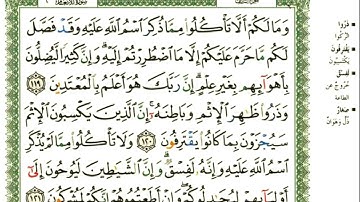 وَمَا لَكُمْ أَلَّا تَأْكُلُوا۟ مِمَّا ذُكِرَ ٱسْمُ ٱللَّهِ عَلَيْهِ وَقَدْ فَصَّلَ
لَكُم مَّا حَرَّمَ عَلَيْكُمْ إِلَّا مَا ٱضْطُرِرْتُمْ إِلَيْهِ ۗ وَإِنَّ كَثِيرًا لَّيُضِلُّونَ
بِأَهْوَآئِهِم بِغَيْرِ عِلْمٍ ۗ إِنَّ رَبَّكَ هُوَ أَعْلَمُ بِٱلْمُعْتَدِينَ ١١٩
وَذَرُوا۟ ظَٰهِرَ ٱلْإِثْمِ وَبَاطِنَهُۥٓ ۚ إِنَّ ٱلَّذِينَ يَكْسِبُونَ ٱلْإِثْمَ
سَيُجْزَوْنَ بِمَا كَانُوا۟ يَقْتَرِفُونَ ١٢٠ وَلَا تَأْكُلُوا۟ مِمَّا لَمْ يُذْكَرِ
ٱسْمُ ٱللَّهِ عَلَيْهِ وَإِنَّهُۥ لَفِسْقٌ ۗ وَإِنَّ ٱلشَّيَٰطِينَ لَيُوحُونَ إِلَىٰٓ
أَوْلِيَآئِهِمْ لِيُجَٰدِلُوكُمْ ۖ وَإِنْ أَطَعْتُمُوهُمْ إِنَّكُمْ لَمُشْرِكُونَ ١٢١
ذَرُوا
اتْرُكُوا
يَقْتَرِفُونَ
يَكْتَسِبُونَ
لَفِسْقٌ
خُرُوجٌ عن
الطاعةِ
صَغَارٌ
ذُلٌّ وهَوَانٌ